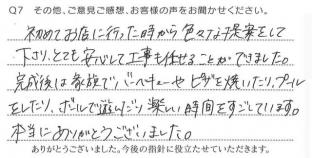 Q7 その他、ご意見ご感想、お客様の声をお聞かせください。
初めてお店に行った時から色々な提案をして
下さり、とても安心して工事も任せることができました。
完成後は家族でバーベキューやピザを焼いたり、プール
をしたり、ボールで遊んだり楽しい時間をすごしています。
本当にありがとうございました。
ありがとうございました。今後の指針に役立たせていただきます。